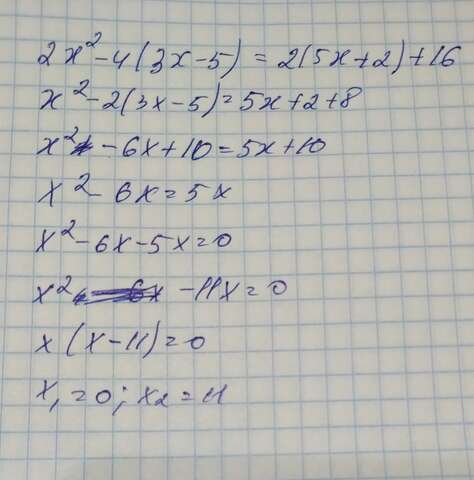 2x² - 4(3x - 5) = 2(5x + 2) + 16
x² - 2(3x - 5) = 5x + 2 + 8
x² - 6x + 10 = 5x + 10
x² - 6x = 5x
x² - 6x - 5x = 0
x² - 11x = 0
x(x - 11) = 0
x₁ = 0; x₂ = 11